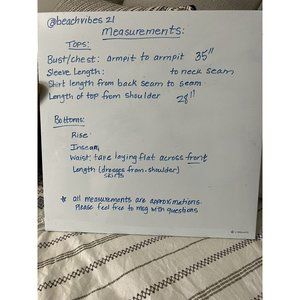 @beachvibes21
Measurements:
Tops:
Bust/chest: armpit to armpit 35"
Sleeve Length: to neck seam
Shirt length from back seam to seam
Length of top from shoulder 28"
Bottoms:
Rise
Inseam
Waist: tape laying flat across front
Length (dresses from shoulder)
skirts
* all measurements are approximations.
Please feel free to msg with questions